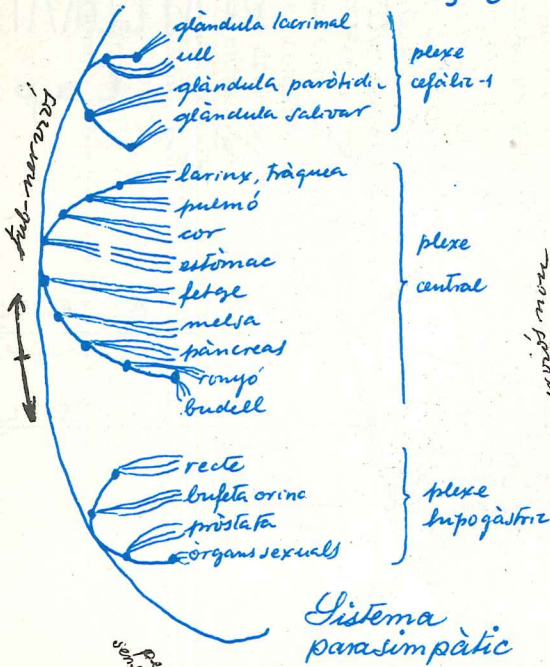 glàndula lacrimal
ull
glàndula
glàndula salivar
plexe
tub nerviós
larinx, tràquea
pulmó
cor
estòmac
fetge
melsa
pàncreas
ronyó
budell
plexe
central
recte
bufeta orina
pròstata
òrgans sexuals
plexe
hipogàstric
Sistema
parasimpàtic